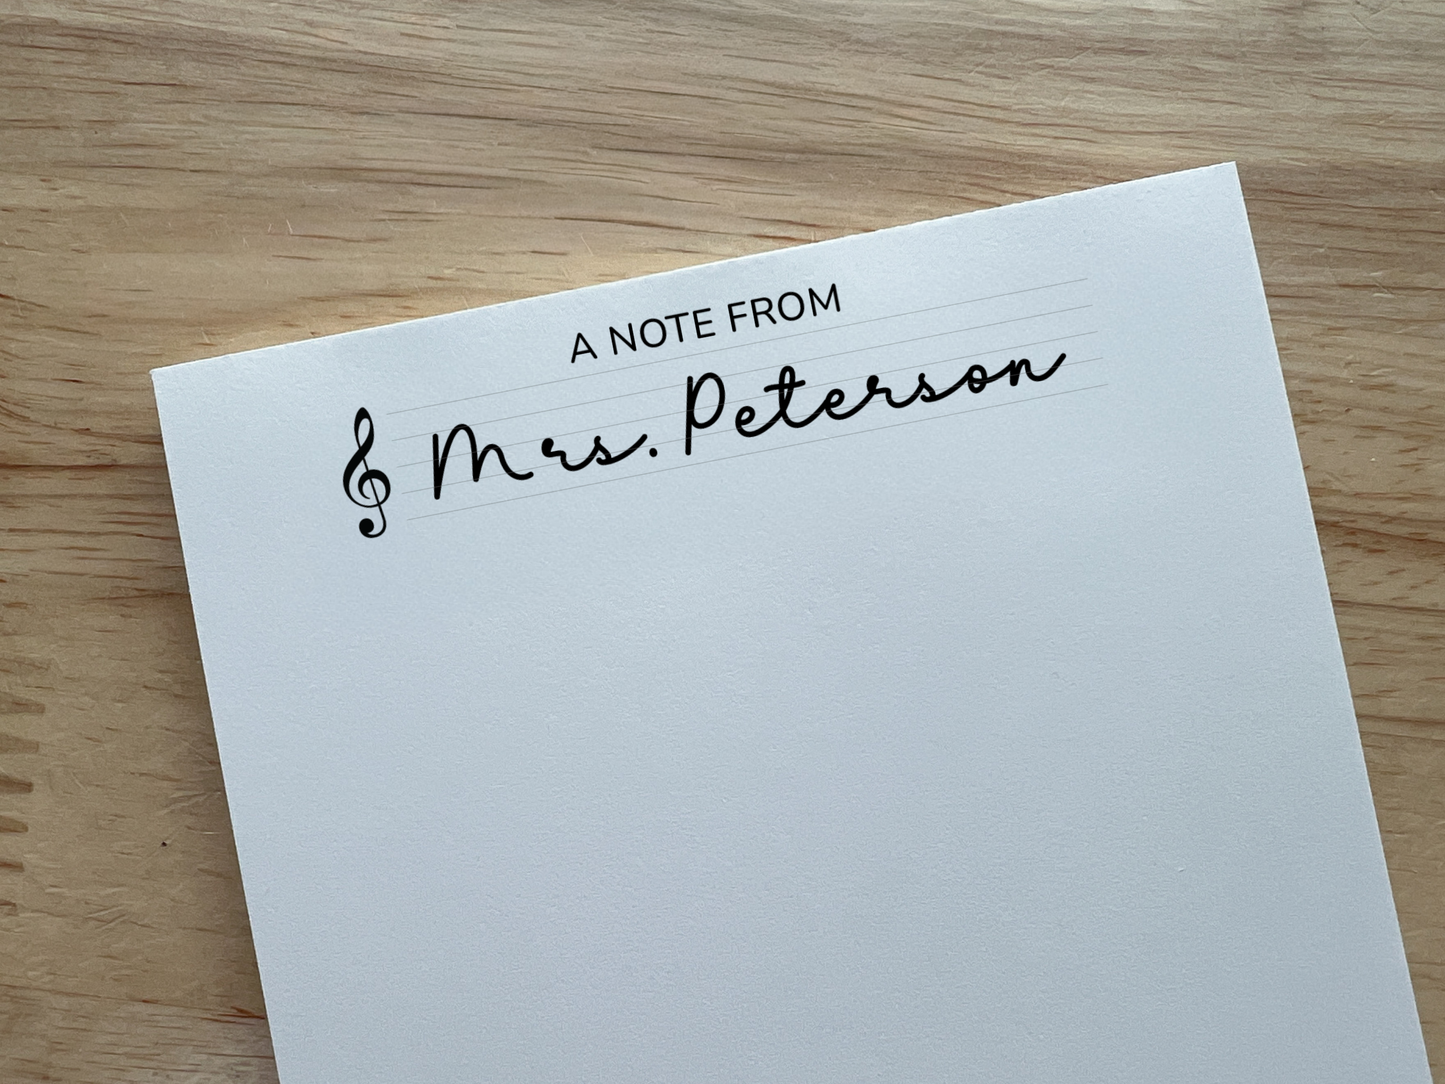 A NOTE FROM
Mrs. Peterson